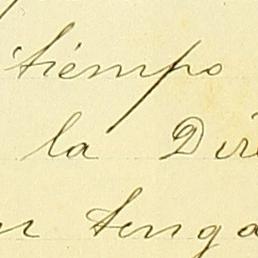 tiempo
la Dire
tenga